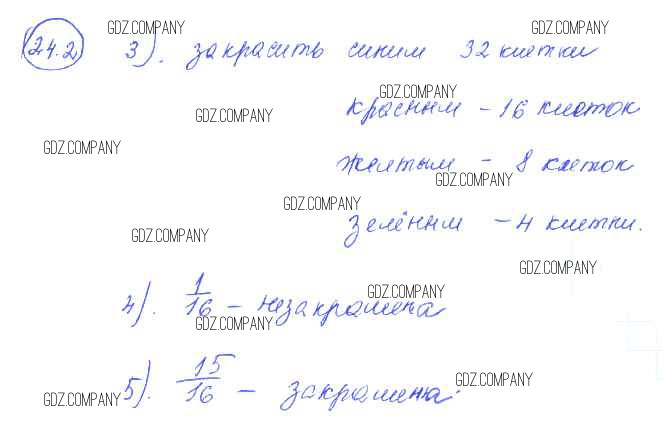 24.2 3). закрасить синим 32 клетки
красным - 16 клеток
желтым - 8 клеток
зелёным - 4 клетки.
4). 1/16 - незакрашена
5). 15/16 - закрашена.
GDZ.COMPANY
GDZ.COMPANY
GDZ.COMPANY
GDZ.COMPANY
GDZ.COMPANY
GDZ.COMPANY
GDZ.COMPANY
GDZ.COMPANY
GDZ.COMPANY
GDZ.COMPANY
GDZ.COMPANY
GDZ.COMPANY
GDZ.COMPANY